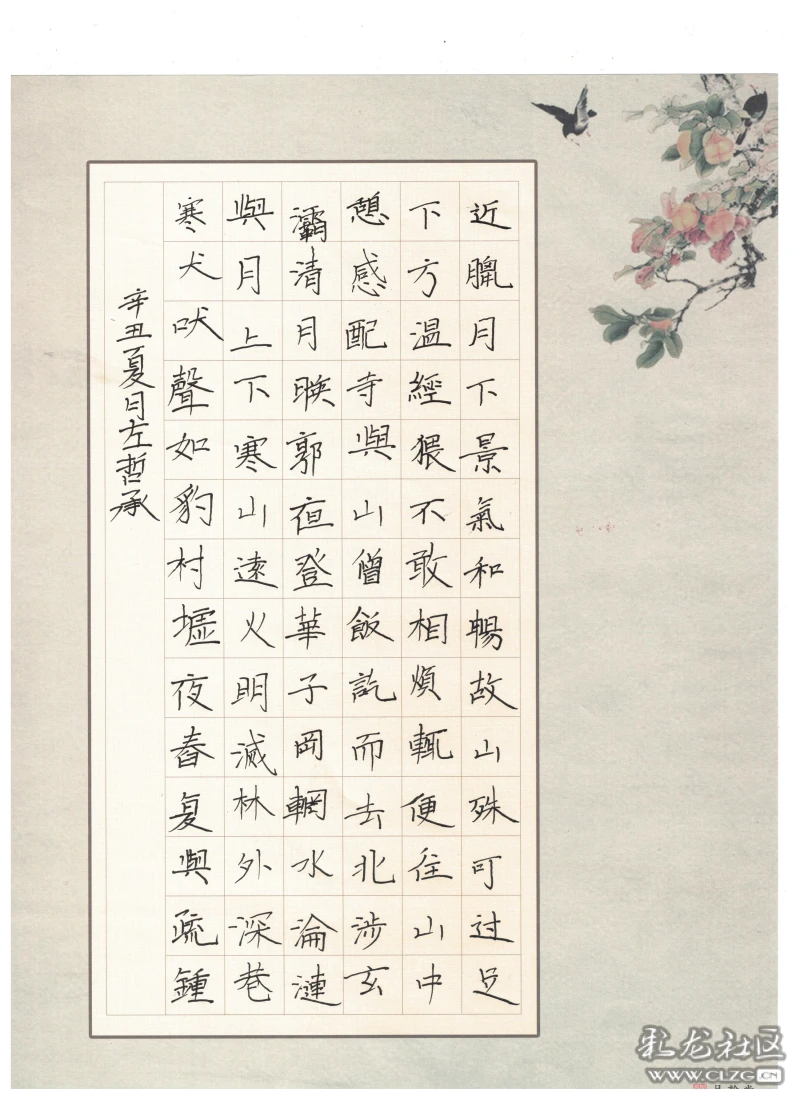 近臘月下景氣和暢故山殊可过足
下方温經猥不敢相煩輒便往山中
憩感配寺與山僧飯訖而去北涉玄
灞清月映郭夜登華子岡輞水淪漣
與月上下寒山遠火明滅林外深巷
寒犬吠聲如豹村墟夜舂复與疏鍾
辛丑夏月左哲承
彩龙社区
WWW.CLZG.CN